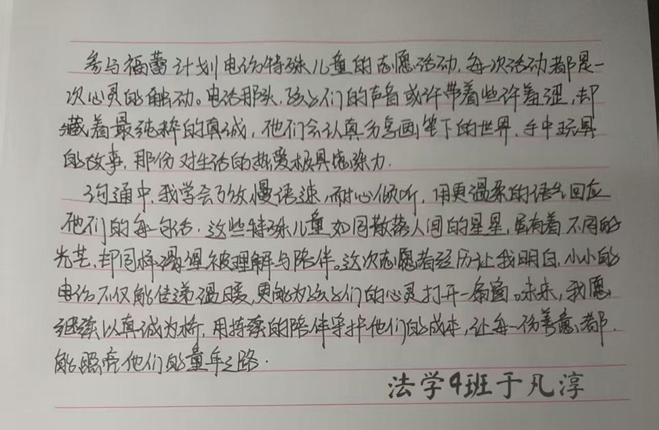 参与福蕾计划电访特殊儿童的志愿活动,每次活动都是一
次心灵的触动。电话那头,孩子们的声音或许带着些许羞涩,却
藏着最纯粹的真诚,他们会认真分享画笔下的世界,手中玩具
的故事,那份对生活的热爱极具感染力.
沟通中,我学会了放慢语速,耐心倾听,用更温柔的语气回应
他们的每句话.这些特殊儿童,如同散落人间的星星,虽有着不同的
光芒,却同样渴望被理解与陪伴。这次志愿者经历让我明白,小小的
电访不仅能传递温暖,更能为孩子们的心灵打开一扇窗。未来,我愿
继续以真诚为桥,用持续的陪伴守护他们的成长,让每一份善意都
能照亮他们的童年之路.
法学4班于凡淳